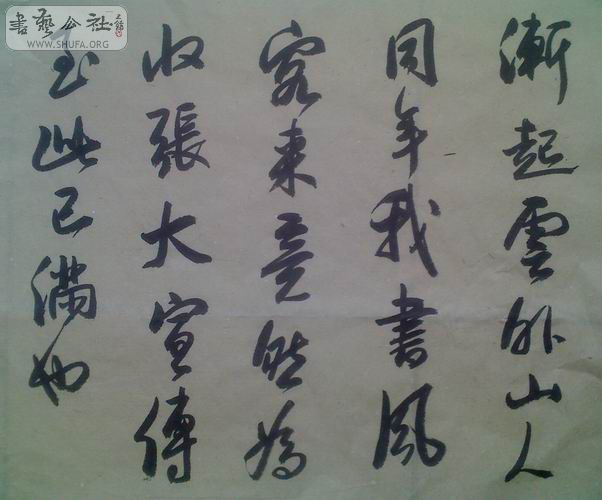 書藝公社
WWW.SHUFA.ORG
漸起雲外山人
同年我書風
客来竟然為
收張大宣傳
至此已滿也